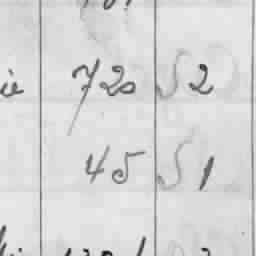 ie 720 S 2
45 S 1